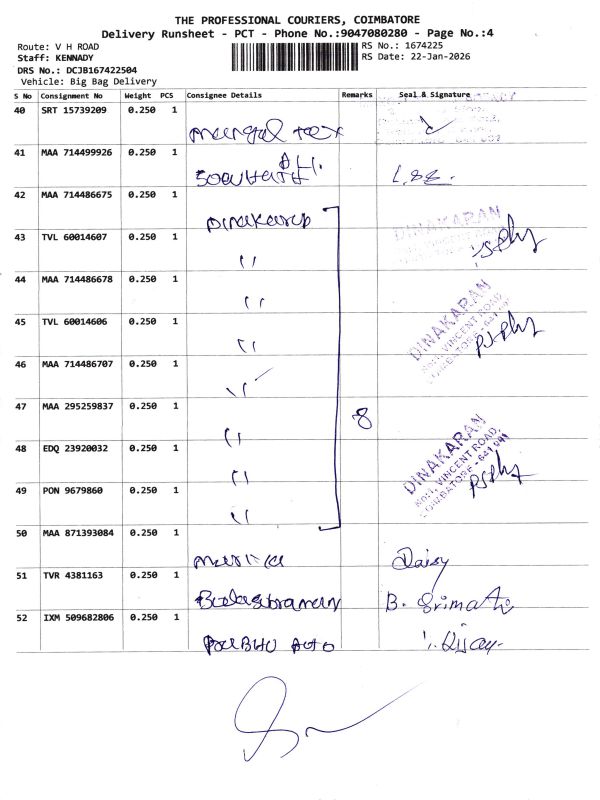 THE PROFESSIONAL COURIERS, COIMBATORE
Delivery Runsheet - PCT - Phone No.:9047080280 - Page No.:4
Route: V H ROAD
RS No.: 1674225
Staff: KENNADY
RS Date: 22-Jan-2026
DRS No.: DCJB167422504
Vehicle: Big Bag Delivery
S No Consignment No Weight PCS Consignee Details Remarks Seal & Signature
40 SRT 15739209 0.250 1
41 MAA 714499926 0.250 1
42 MAA 714486675 0.250 1
Dinakaran DINAKARAN
43 TVL 60014607 0.250 1
"
44 MAA 714486678 0.250 1
"
DINAKARAN
VINCENT ROAD
45 TVL 60014606 0.250 1
"
46 MAA 714486707 0.250 1
"
47 MAA 295259837 0.250 1
" 8
DINAKARAN
VINCENT ROAD,
COIMBATORE - 641 001
48 EDQ 23920032 0.250 1
"
49 PON 9679860 0.250 1
"
50 MAA 871393084 0.250 1
Daisy
51 TVR 4381163 0.250 1
Balasubramani B. Srimathi
52 IXM 509682806 0.250 1
Auto Vijay